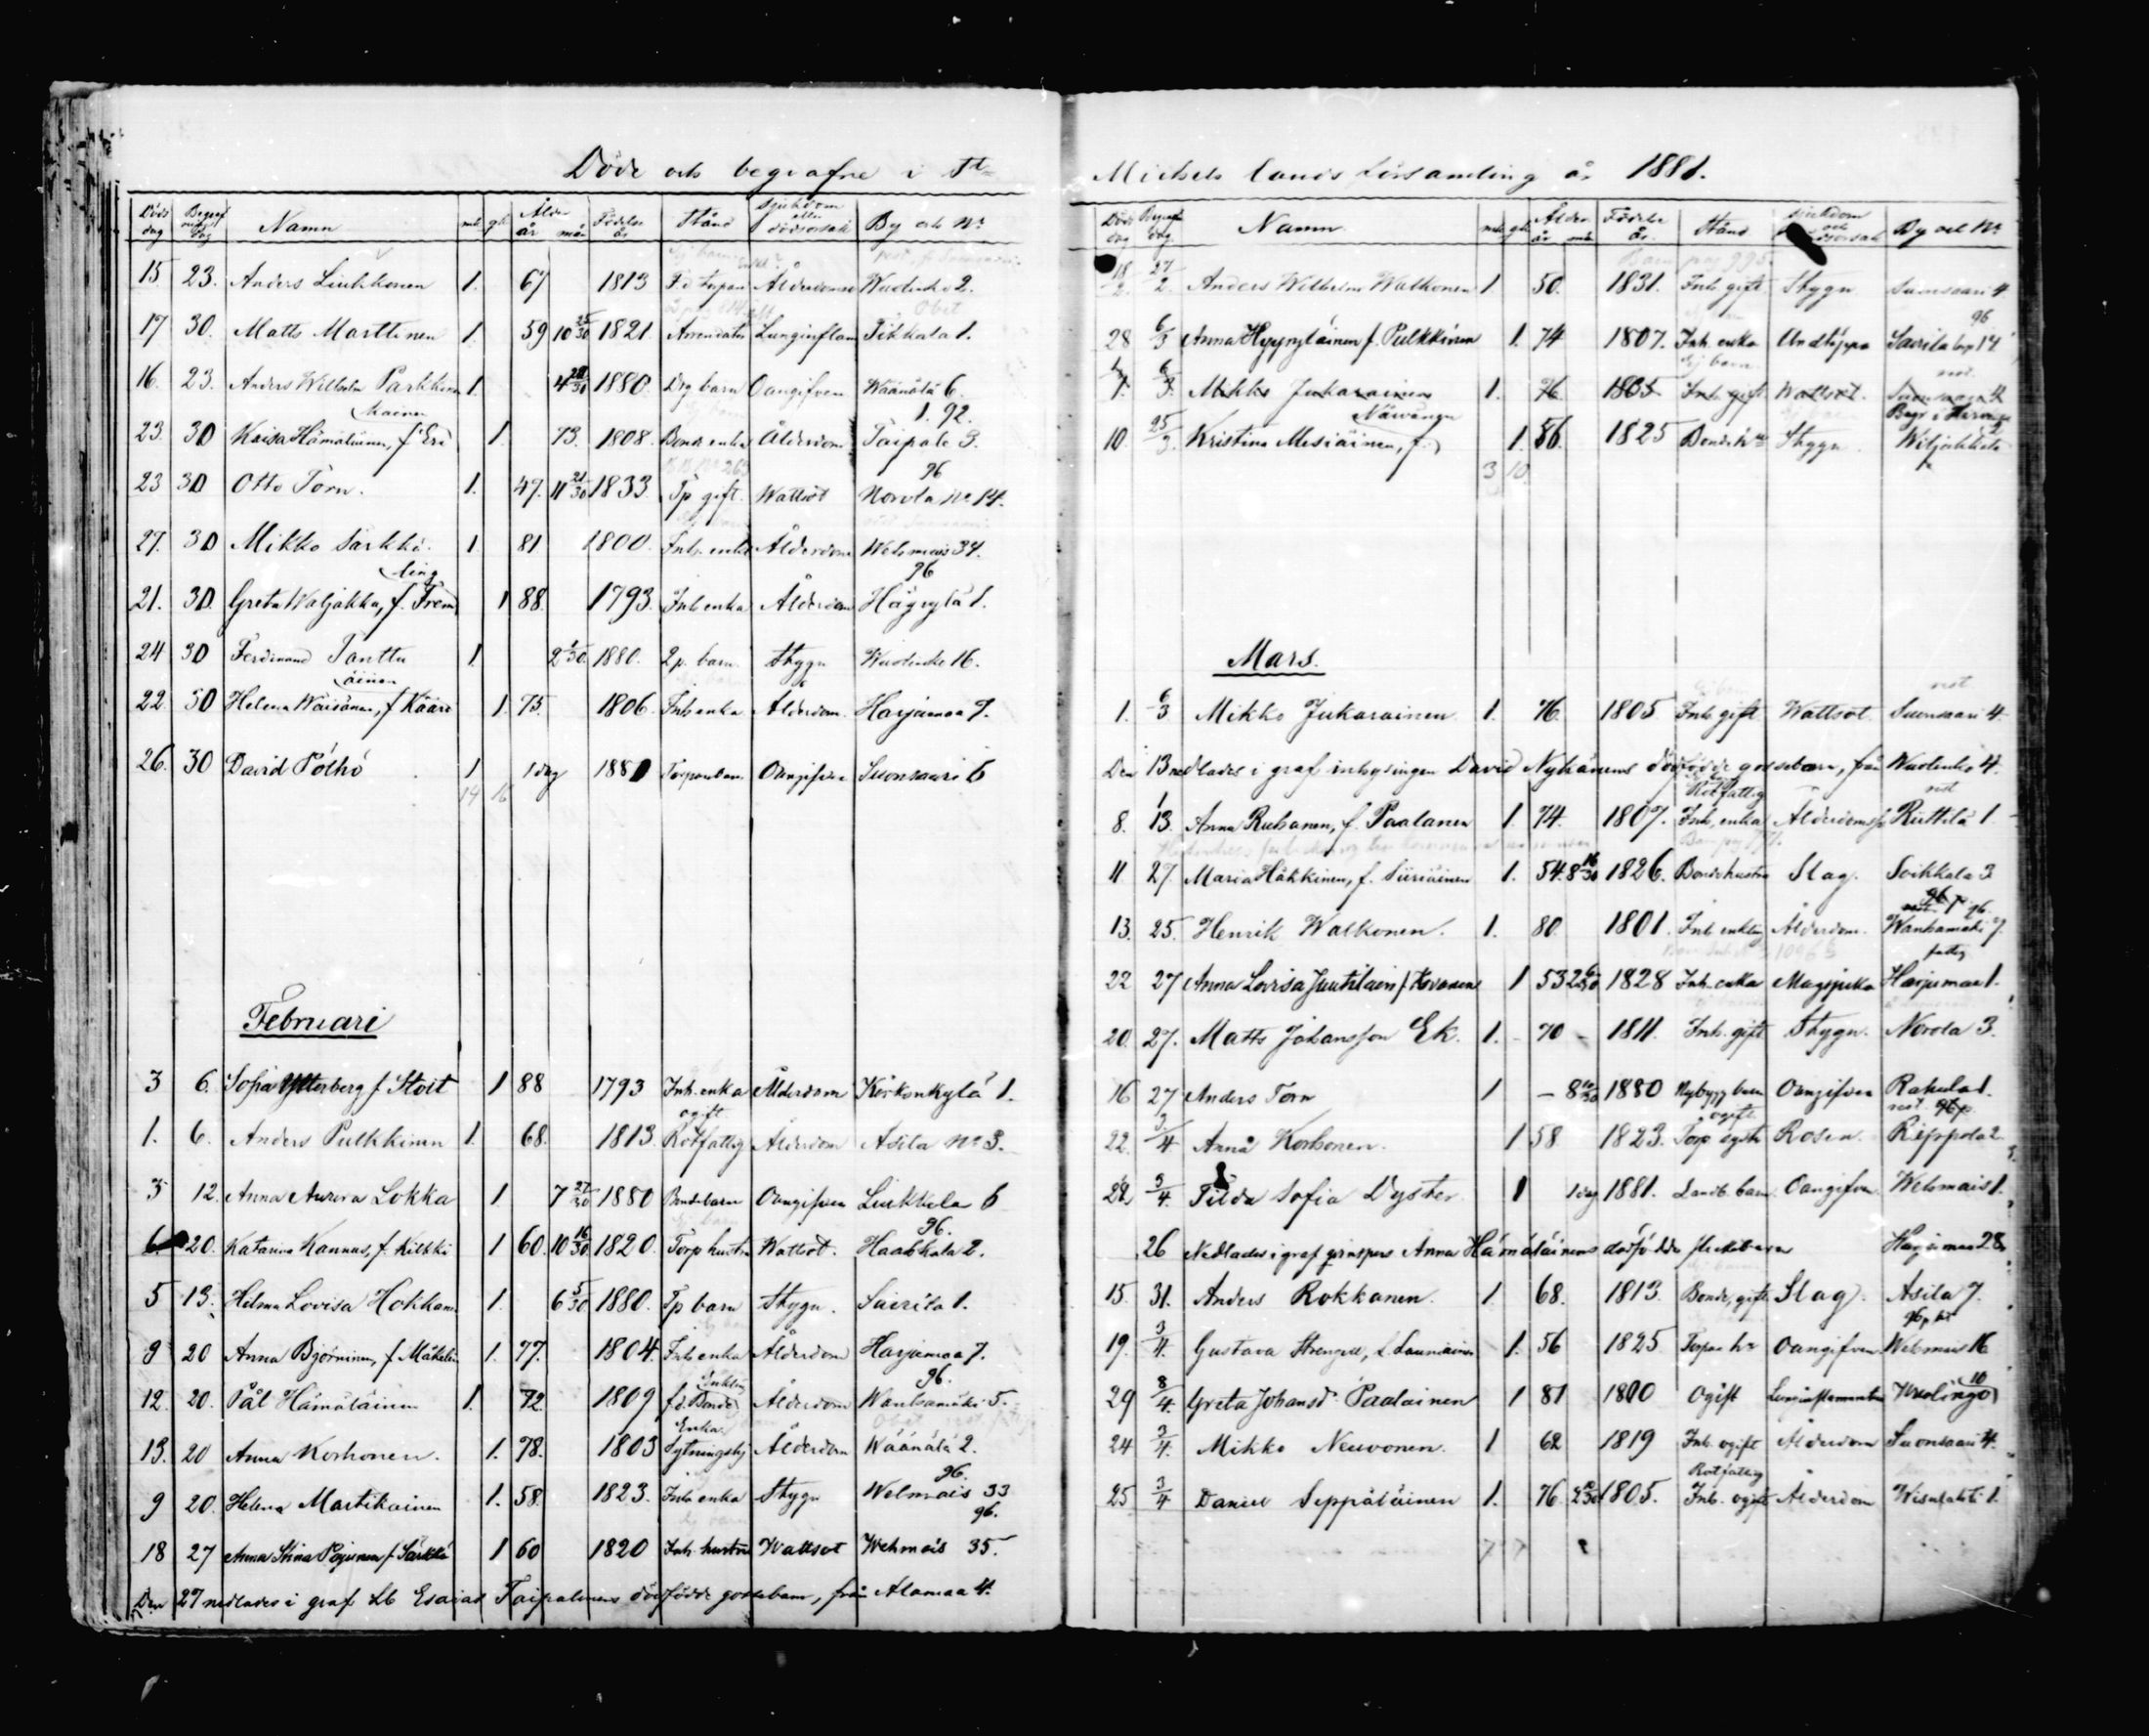 Döde och begrafne i St
Döds dag Begrafnings dag Namn mk qk Ålder år mån Födelse år Stånd Sjukdom eller dödsorsak By och No
15 23. Anders Liukkonen 1. 67 1813 F.d. torpare Ålderdom Wuolinko 2.
17 30. Matts Marttinen 1. 59 10 25/30 1821. Arrendator Lunginflam Pikkala 1.
16. 23. Anders Wilhelm Parkkinen 1. 4 28/31 1880. Drg barn Oangifven Wäänälä 6.
23. 30 Kaisa Hämäläinen, f. Erä 1. 73. 1808. Bonde enka Ålderdom Taipale 3.
23 30 Otto Torn. 1. 47. 11 21/30 1833. Tp gift. Wattsot Norola No 14.
27. 30 Mikko Särkkä. 1. 81 1800. Inh. enkl Ålderdom Wehmais 34.
21. 30. Greta Waljakka, f. Frem ling 1 88. 1793. Inh enka Ålderdom 96
24 30 Ferdinand Tanttu 1. 2 1/30 1880. Lp. barn. Stygn Wuolinko 16.
22. 30 Helena Wäisänen, f. Kääri äinen 1. 75. 1806. Inh enka Ålderdom. Harjumaa 7.
26. 30 David Pölhö 1 1 dag 1881 Torpare barn Oangifven Suonsaari 6
14 16
Februari
3 6. Sofia Ytterberg f. Stoit 1 88 1793 Inh. enka Ålderdom Korkonkylä 1.
1. 6. Anders Pulkkinen 1. 68. 1813. Rotfattig ogift Ålderdom Asila No 3.
3 12. Anna Aurora Lokka 1. 7 27/30 1880 Bondebarn Oangifven Liukkola 6
6. 20. Katarina Kannas, f. Kilkki 1 60. 10 16/30 1820. Torp hustru Wattsot. Haukkala 2.
5 13. Hilma Lovisa Hokkan 1. 6 5/30 1880. Tp barn Stygn. Sairila 1.
9 20 Anna Björninen, f. Mäkelin 1. 77. 1804. Inh enka Ålderdom Harjumaa 7.
12. 20. Pål Hämäläinen 1. 72. 1809 f.d. Bonde Enkling Ålderdom Wanhamäki 5.
13. 20 Anna Korhonen. 1. 78. 1803 Enka Ålderdom Wäänälä 2.
9 20. Helena Martikainen 1. 58. 1823. Inh enka Stygn Wehmais 33
18 27 Anna Stina Pojunen f. Särkkä 1 60 1820 Inh. hustru Wattsot Wehmais 35.
Den 27 nedlades i graf Lb Esaias Taipalinens dödfödde gossebarn, från Alamaa 4.
Michels lands församling år 1881.
Döds dag Begraf dag. Namn mk qk Ålder år mån Födelse år. Stånd Sjukdom och dödsorsak By och No
18/2. 27/2. Anders Wilhelm Walkonen 1 50. 1831. Inh gift Stygn Suonsaari 4
28 6/3 Anna Hyyryläinen f. Pulkkinen 1. 74 1807. Inh. enka Andtäppa Sairila 14
1. 6/3. Mikko Jukarainen 1. 76. 1805 Inh gift Wattsot. Suonsaari 4
10. 25/3. Kristina Misiäinen, f. 1. 56. 1825 Bonde h Stygn
3 10
Mars.
1. 6/3 Mikko Jukarainen 1. 76. 1805 Inh gift Wattsot Suonsaari 4
Den 13 nedlades i graf inhysingen David Nykänens dödfödde gossebarn, från Wuolinko 4.
8. 13. Anna Ruhanen, f. Paalanen 1. 74. 1807. Inh. enka Rotfattig Riittilä 1
11 27. Maria Häkkinen, f. Siiriäinen 1. 54. 8 16/30 1826. Bondehustru Slag. Soikkala 3
13. 25. Henrik Walkonen. 1. 80. 1801. Inh enkling Ålderdom. Wanhamäki 7.
22 27 Anna Lovisa Juutilain f. Kovanen 1 53 1828 Inh. enka Magsjuka Harjumaa 1.
20. 27. Matts Johansson Ek. 1. 70 1811. Inh. gift Stygn. Norola 3.
16 27 Anders Torn 1 8 10/30 1880 Nybygg barn Oangifven Rahula 1.
22. 3/4 Anna Korhonen. 1 58 1823. Torp syster ogift Rosen. 
22 3/4. Tilda Sofia Dyster 1 1 dag 1881. Landb. barn Oangifven. Wehmais 1.
26 Nedlades i graf Anna Hämäläinens dödfödda flickebarn Harjumaa 28
15. 31. Anders Rokkanen. 1. 68. 1813. Bonde, gift. Slag. Asila 7.
19. 3/4. Gustava Strengell, f. Launiainen 1. 56 1825 Oangifven Wehmais 16
29 8/4 Greta Johansd. Paalainen 1 81 1800 Ogift Wuolingo 10
24 3/4. Mikko Neuvonen. 1 62 1819 Inh. ogift Ålderdom Suonsaari 4.
25 3/4 Daniel Seppäläinen 1. 76. 1805. Inh. ogift Rotfattig Ålderdom Wisulahti 1.
7 7